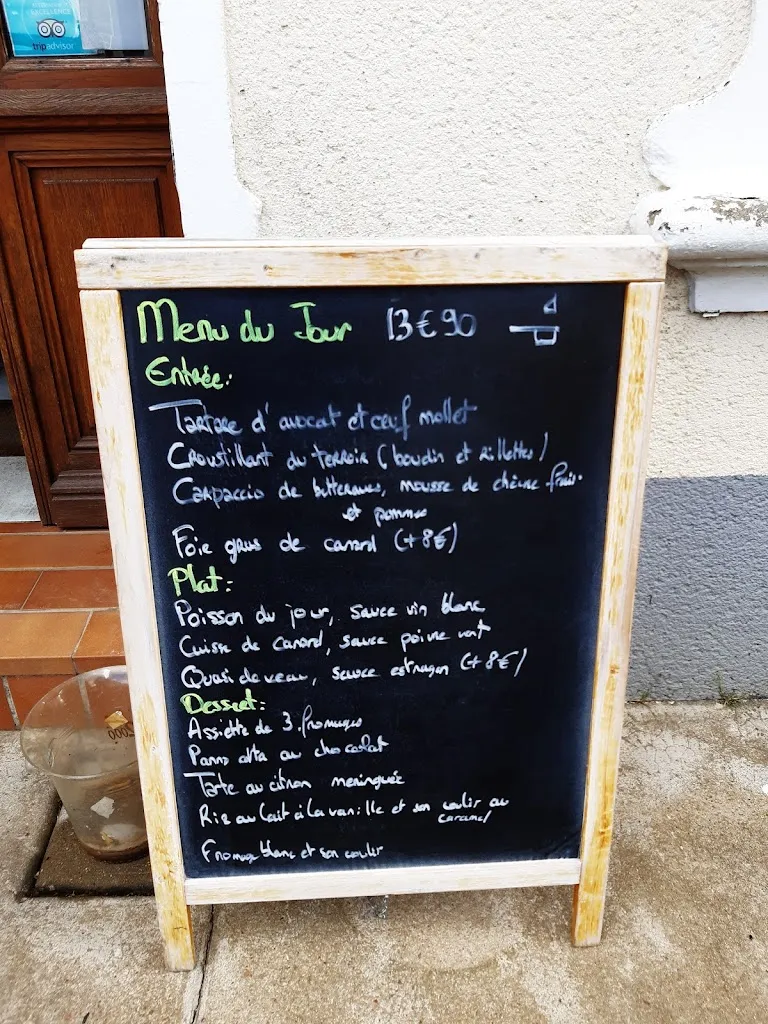 EXCELLENCE
tripadvisor
Menu du Jour 13€90
Entrée:
Tartare d'avocat et œuf mollet
Croustillant du terroir (boudin et rillettes)
Carpaccio de betteraves, mousse de chèvre frais
et pommes
Foie gras de canard (+8€)
Plat:
Poisson du jour, sauce vin blanc
Cuisse de canard, sauce poivre vert
Quasi de veau, sauce estragon (+8€)
Dessert:
Assiette de 3 fromages
Panna cotta au chocolat
Tarte au citron meringuée
Riz au lait à la vanille et son coulis au
caramel
Fromage blanc et son coulis